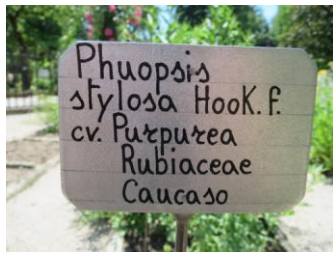 Phuopsis
stylosa Hook.f.
cv. Purpurea
Rubiaceae
Caucaso